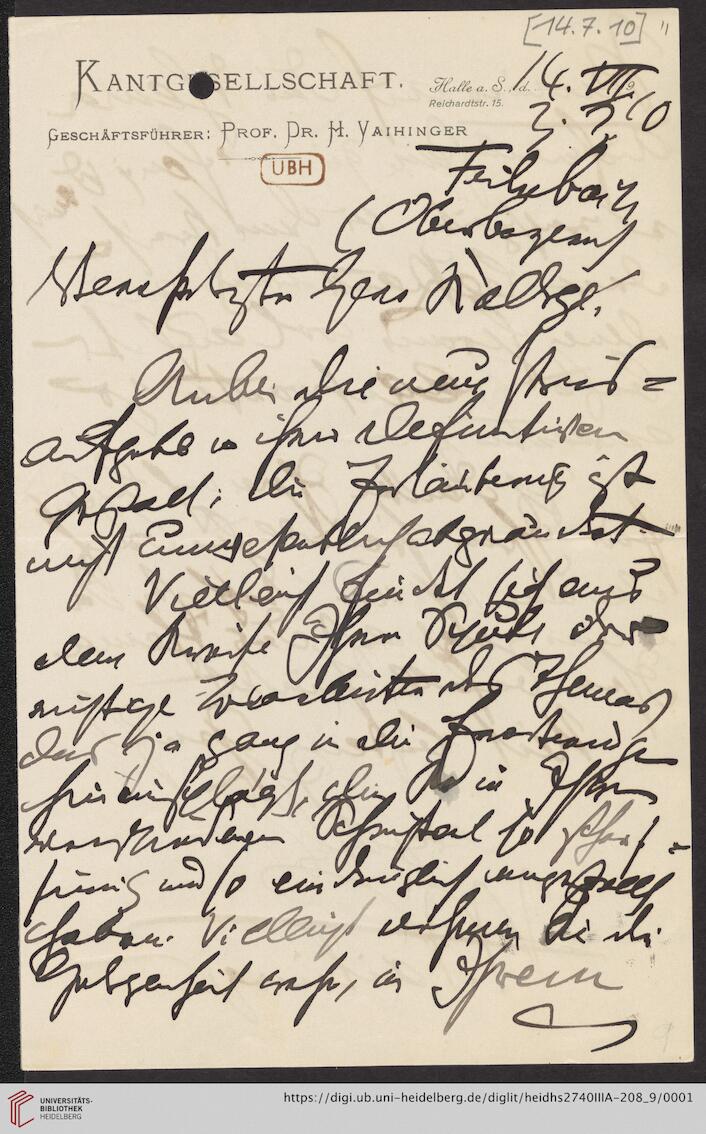 [14.7.10]
KANTGESELLSCHAFT.
Halle a. S., d. 14. VII. 10
Reichardtstr. 15.
GESCHÄFTSFÜHRER: PROF. DR. H. VAIHINGER
UBH
(Oberbayern)
Herr Kollege,
Anbei die neue Preis=
aufgabe in ihrer definitiven
Gestalt; die Erläuterung ist
Vielleicht findet sich aus
dem Kreise Ihrer Schüler der
richtige des Themas
das ja ganz in die
die Sie in Ihren
verschiedenen Schriften so scharf=
sinnig und so eindringlich
haben. Vielleicht nehmen Sie die
Gelegenheit wahr, in Ihrem
UNIVERSITÄTS-
BIBLIOTHEK
HEIDELBERG
https://digi.ub.uni-heidelberg.de/diglit/heidhs2740IIIA-208_9/0001